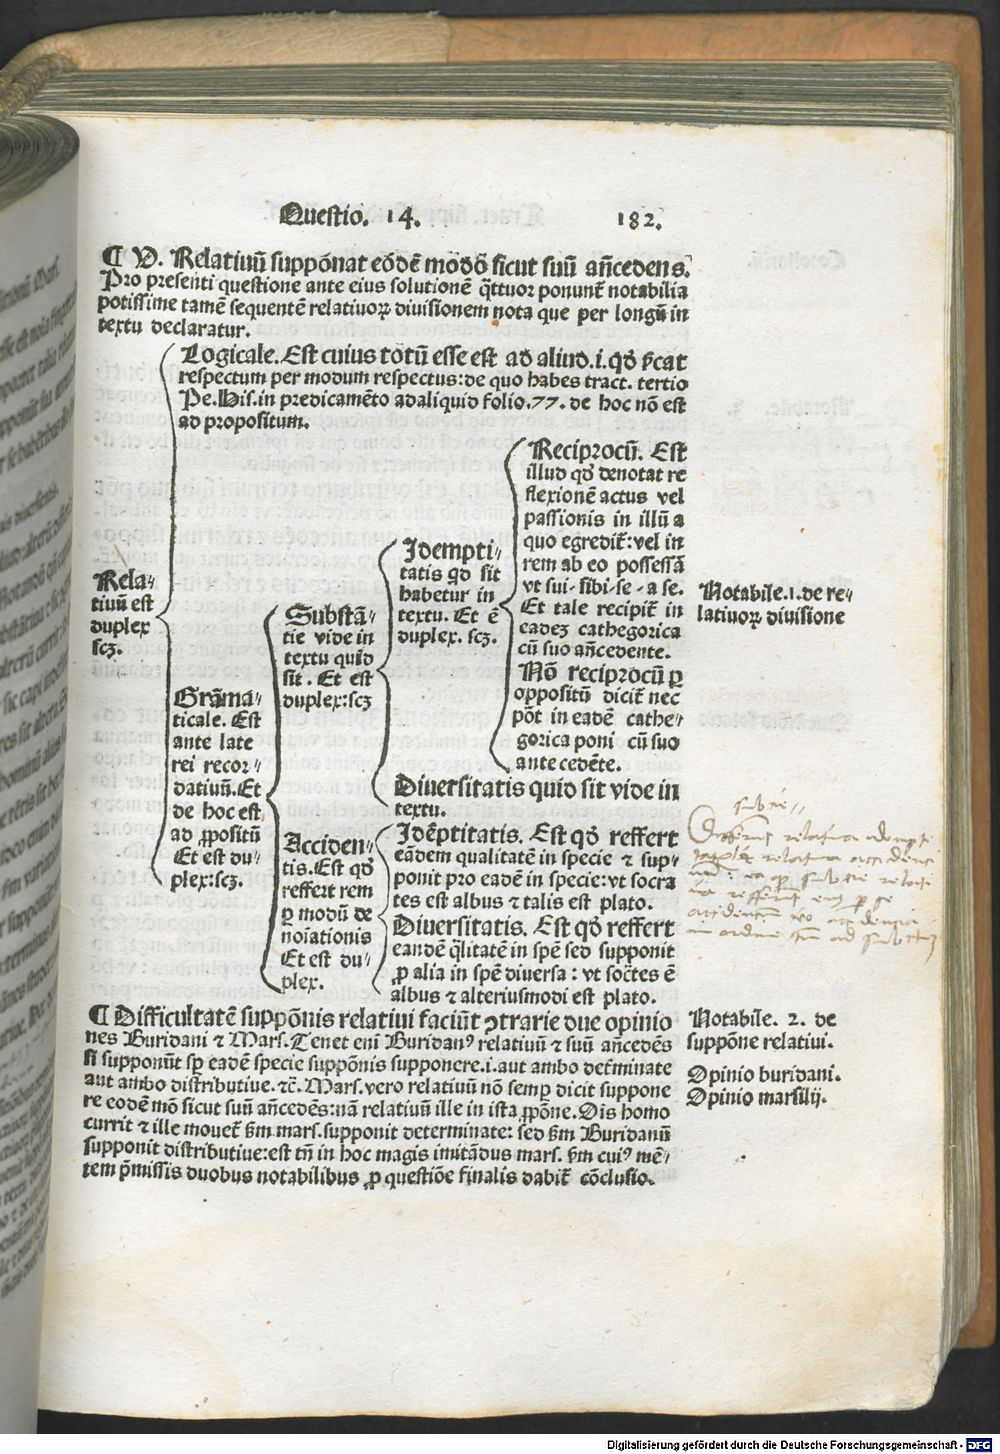 Questio. 14. 182.
¶ V. Relativū suppōnat eōdē mōdō sicut suū añcedens.
Pro presenti questione ante eius solutionē q̄ttuor ponunt̄ notabilia
potissime tamē sequentē relativoꝝ divisionem nota que per longū in
textu declaratur.
Logicale. Est cuius totū esse est ad aliud .i. qđ p̄cat
respectum per modum respectus: de quo habes tract. tertio
Pe. His. in predicamēto adaliquid folio. 77. de hoc nō est
ad propositum.
Rela-
tivū est
duplex
scꝫ.
Grām̄a-
ticale. Est
ante late
rei recor-
dativū. Et
de hoc est
ad ꝓpositū
Et est du-
plex: scꝫ.
Substā-
tie vide in
textu quid
sit. Et est
duplex: scꝫ
Idempti-
tatis qđ sit
habetur in
textu. Et ē
duplex. scꝫ.
Reciprocū. Est
illud qđ denotat re
flexionē actus vel
passionis in illū a
quo egredit̄: vel in
rem ab eo possessā
vt sui-sibi-se-a se.
Et tale recipit̄ in
eadeꝫ cathegorica
cū suo añcedente.
Nō reciprocū ꝑ
oppositū dicit̄ nec
pōt in eadē cathe-
gorica poni cū suo
antecedēte.
Diversitatis quid sit vide in
textu.
Acciden-
tis. Est qđ
reffert rem
ꝑ modū de
noīationis
Et est du-
plex.
Idēptitatis. Est qđ reffert
eādem qualitatē in specie ⁊ sup-
ponit pro eadē in specie: vt socra
tes est albus ⁊ talis est plato.
Diversitatis. Est qđ reffert
eandē q̄litatē in spē sed supponit
ꝓ alia in spē diversa: vt soc̄tes ē
albus ⁊ alteriusmodi est plato.
¶ Difficultatē suppōnis relativi faciūt ꝯtrarie due opinio
nes Buridani ⁊ Mars. Tenet eni Buridanꝰ relativū ⁊ suū añcedēs
si supponūt sꝑ eadē specie suppōnis supponere .i. aut ambo det̄minate
aut ambo distributive. ⁊c̄. Mars. vero relativū nō semꝑ dicit suppone
re eodē mō sicut suū añcedēs: nā relativū ille in ista ꝓpōne. Ois homo
currit ⁊ ille movet̄ s̄m mars. supponit determinate: sed s̄m Buridanū
supponit distributive: est tñ in hoc magis imitādus mars. s̄m cuiꝰ mē-
tem p̄missis duobus notabilibus ꝓ questiōe finalis dabit̄ cōclusio.
Notabile. 1. de re-
lativoꝝ divisione
Notabile. 2. de
suppōne relativi.
Opinio buridani.
Opinio marsilij.
Digitalisierung gefördert durch die Deutsche Forschungsgemeinschaft - DFG